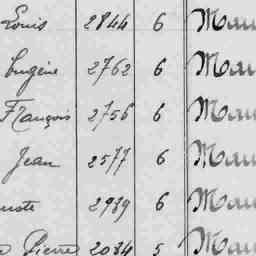 Louis 2844 6 Mau
Eugène 2762 6 Mau
François 2756 6 Mau
Jean 2577 6 Mau
uste 2989 6 Mau
Pierre 2034 5 Mau